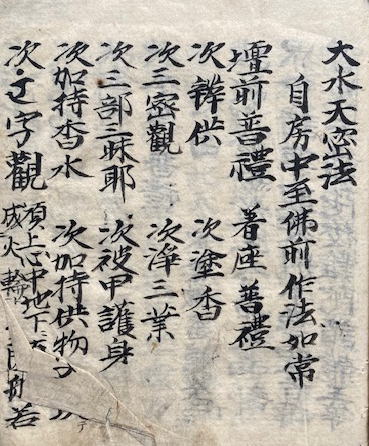 大水天密法
自房中至佛前作法如常
壇前普禮　著座　普禮
次辨供　次塗香
次三密觀　次淨三業
次三部三昧耶　次被甲護身
次加持香水　次加持供物
次字觀　頂上心中地下
成火輪